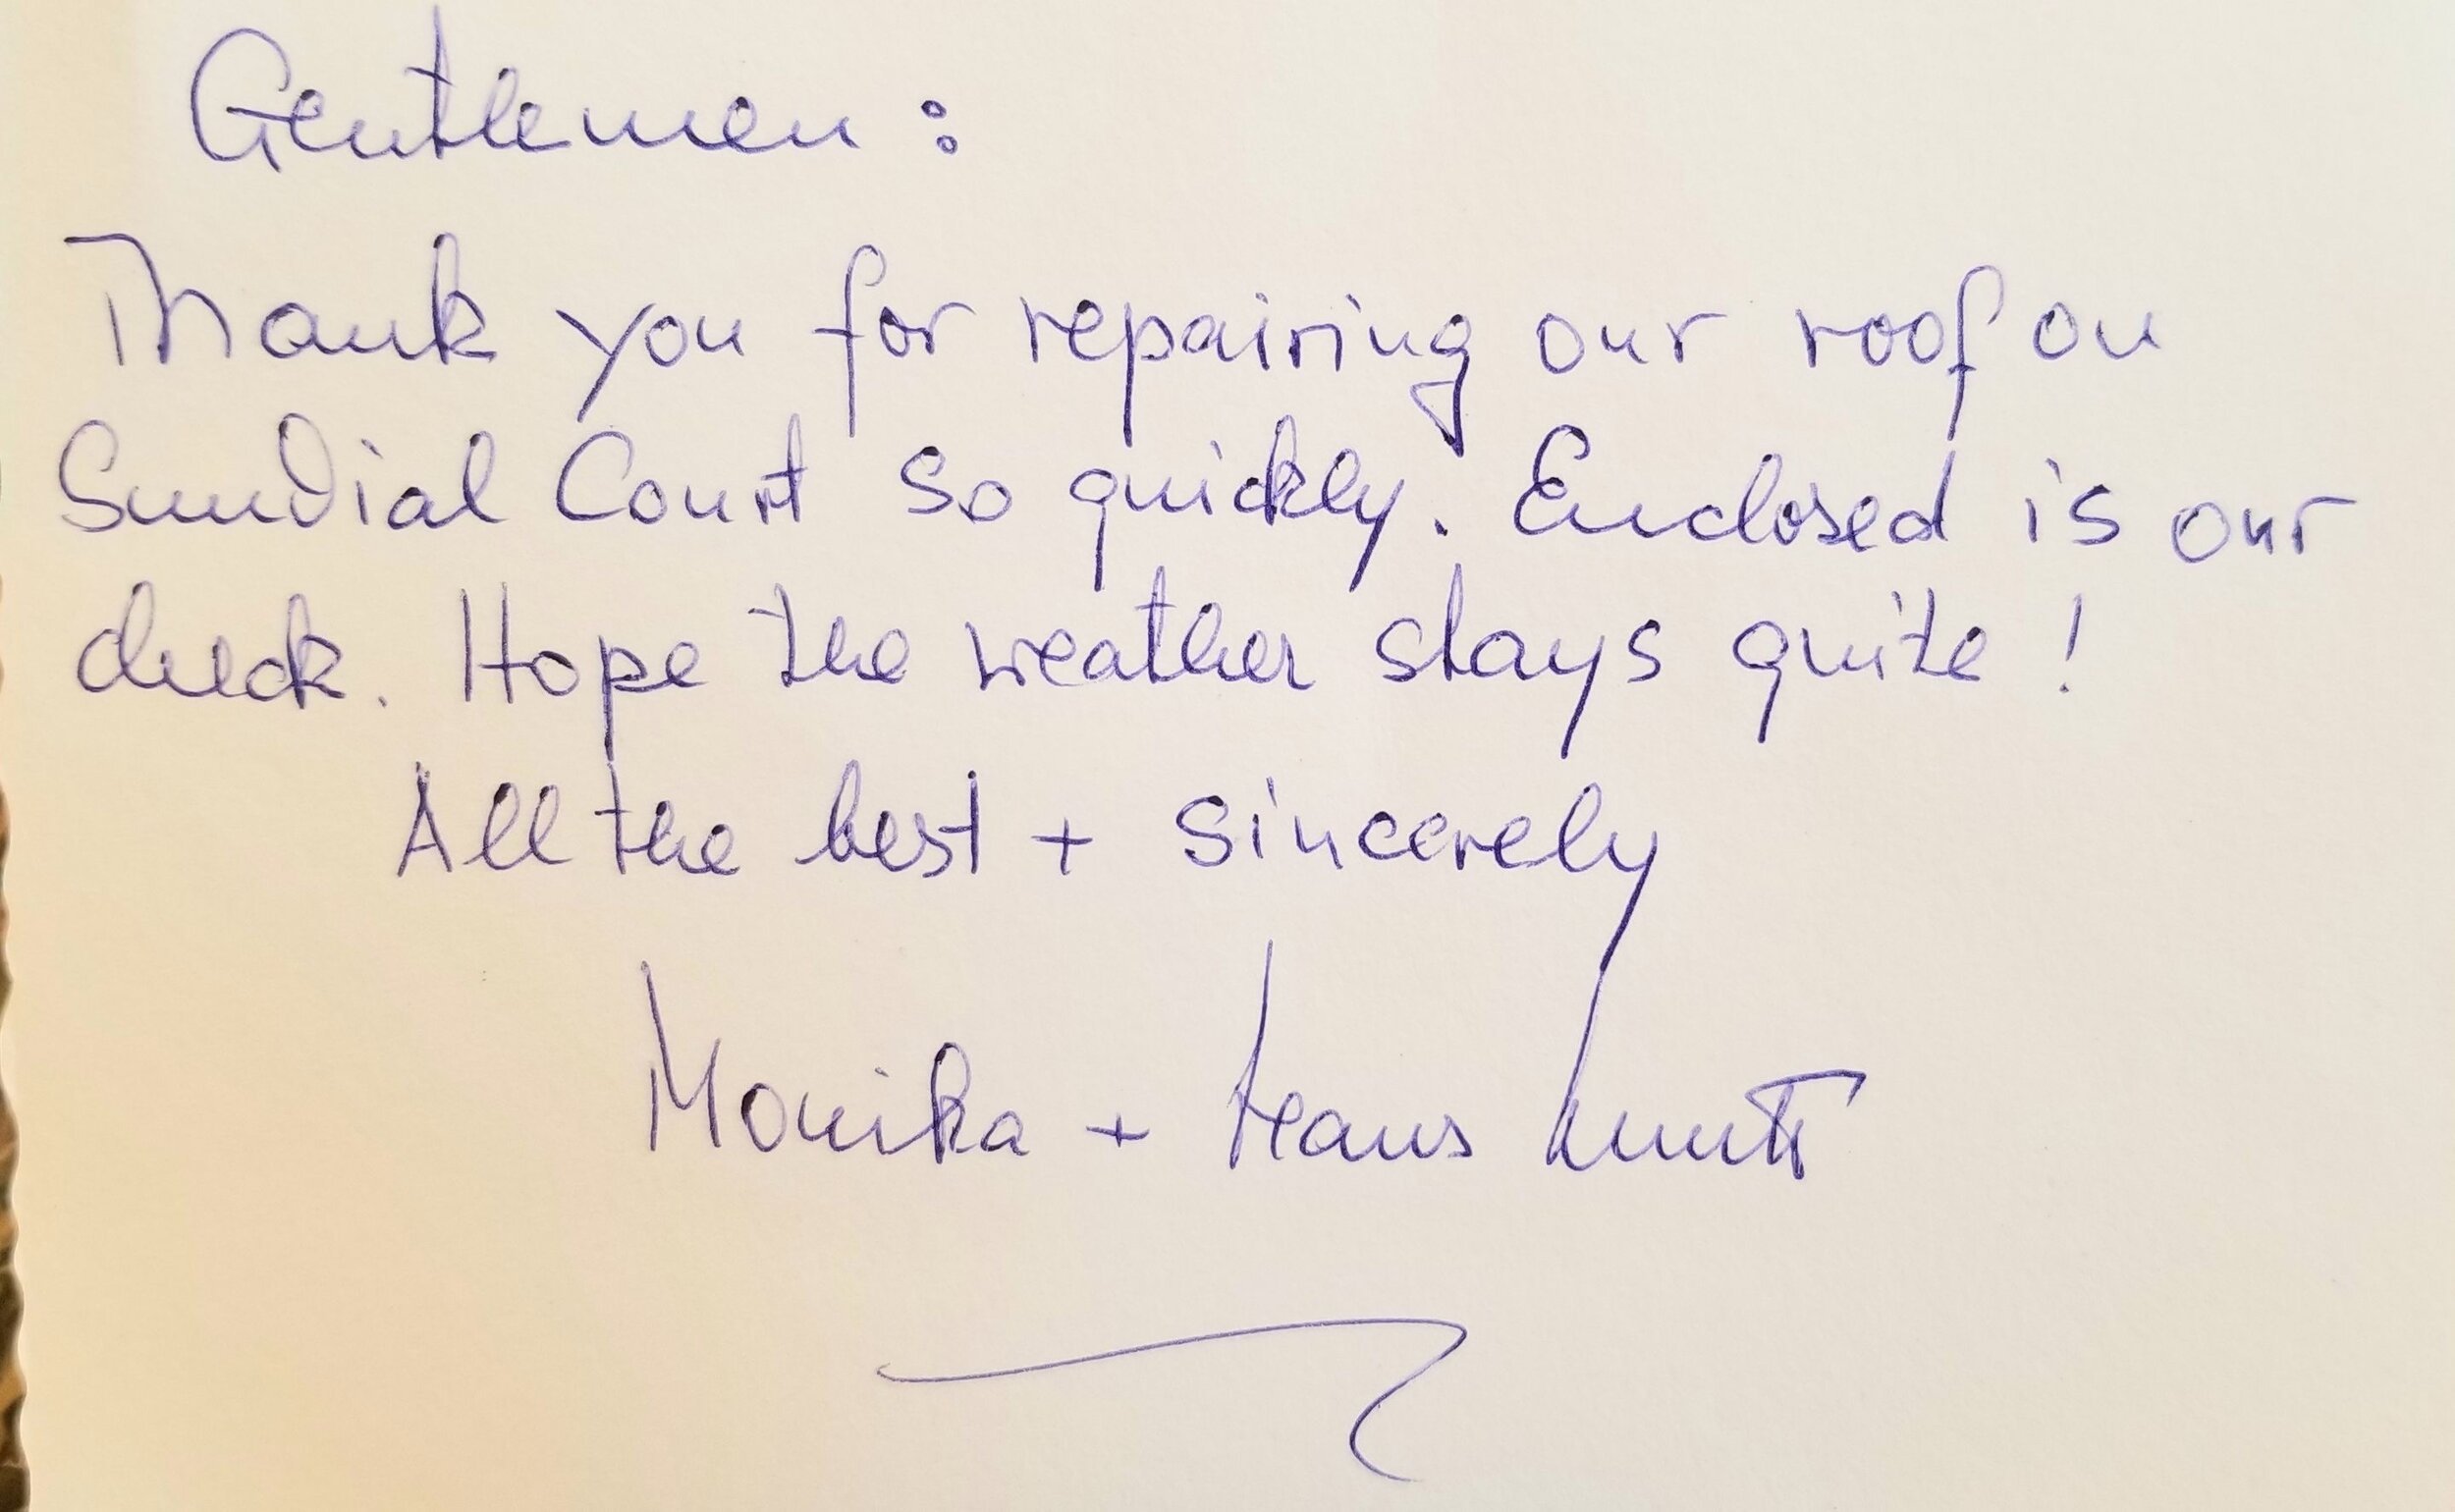 Gentlemen:
Thank you for repairing our roof on
Sundial Court so quickly. Enclosed is our
check. Hope the weather stays quite!
All the best + sincerely
Monika + Hans